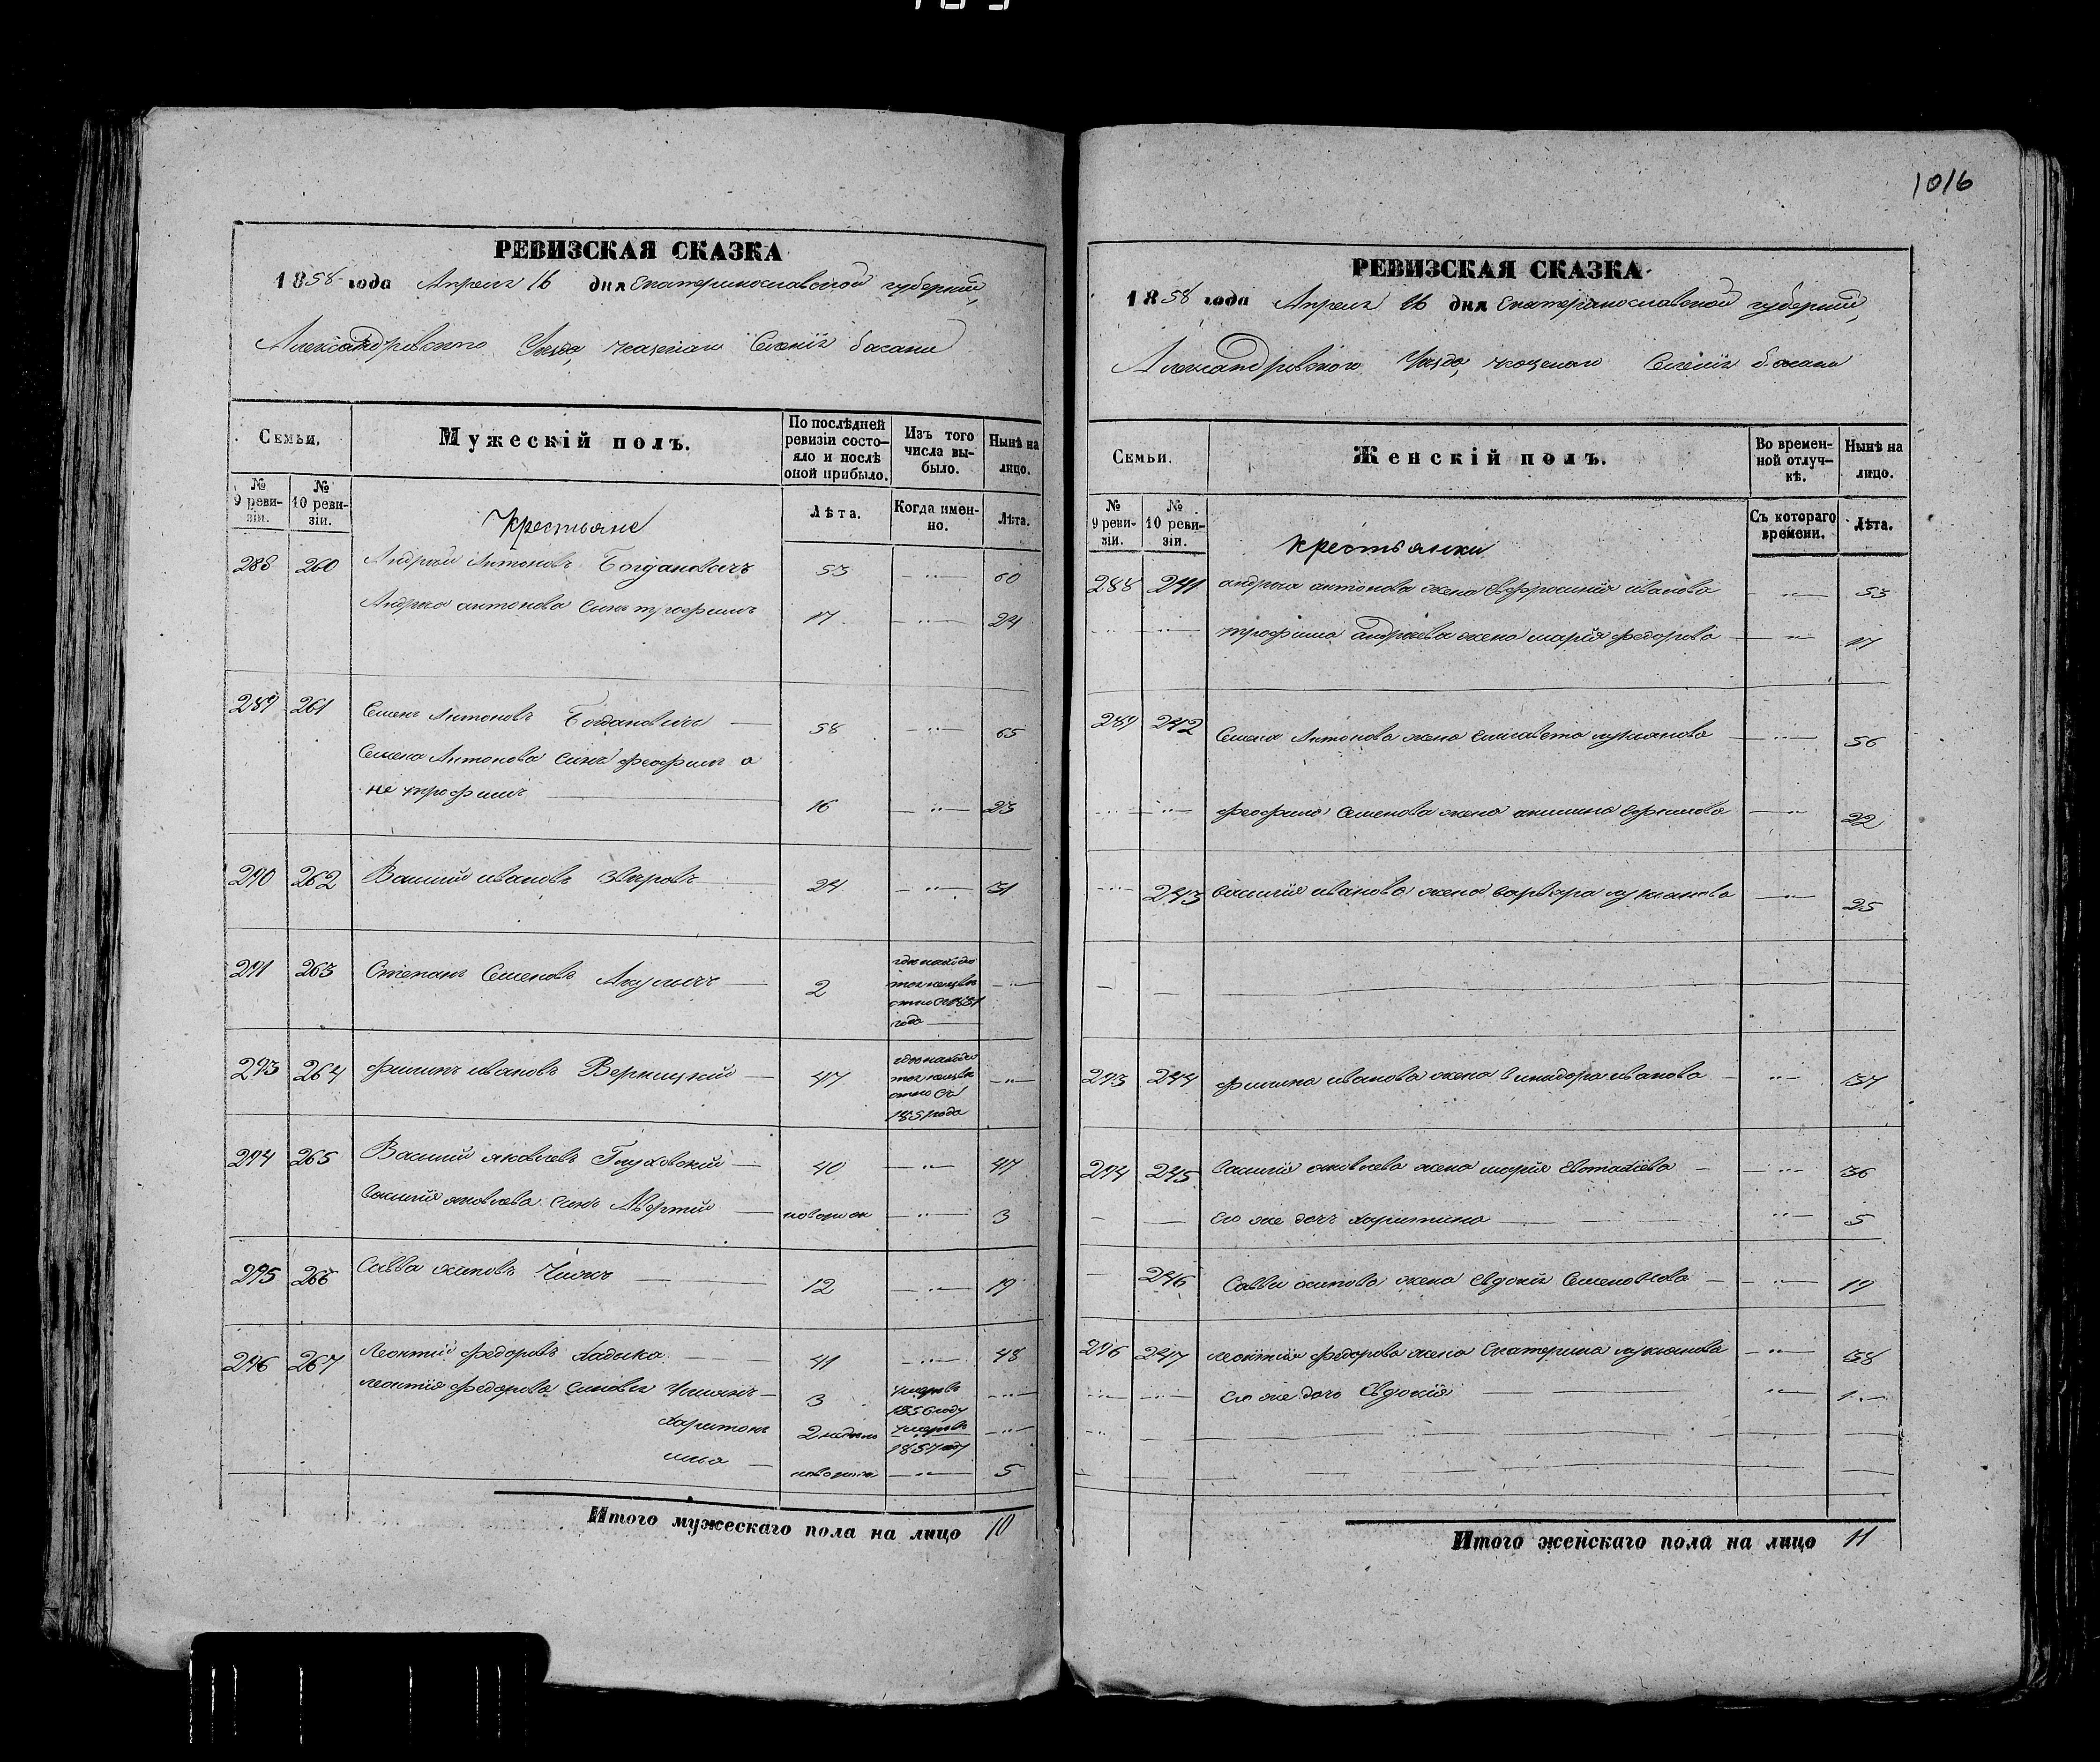 1016
РЕВИЗСКАЯ СКАЗКА
1858 года Апреля 16 дня Екатеринославской губернии,
Александровского Уезда, казенного Селения басани
Семьи. Мужескій полъ. По послѣдней ревизіи состояло и послѣ оной прибыло. Изъ того числа выбыло. Нынѣ на лицо.
№ 9 ревизіи. № 10 ревизіи. Лѣта. Когда именно. Лѣта.
Крестьяне
288 260 Андрей Антоновъ Богдановичъ 53 60
Андрея антонова сынъ трофимъ 17 24
289 261 Семенъ Антоновъ Богдановичъ 58 65
Семена Антонова сынъ феофилъ а
не трофимъ 16 23
290 262 Василий ивановъ Звѣровъ 24 31
291 263 Степанъ Семеновъ Акуличъ 2 года
293 264 филипъ ивановъ Верницкий 47 1851 года
294 265 Василий яковлевъ Глуховский 40 47
Василия яковлева сынъ 3
295 266 Савва осиповъ 12 19
296 267 Леонтий федоровъ Хадыка 41 48
леонтия федорова сыновья 3 умеръ въ 1856 году
харитонъ умеръ въ 1857 году
илья 5
Итого мужескаго пола на лицо 10
РЕВИЗСКАЯ СКАЗКА
1858 года Апреля 16 дня Екатеринославской губернии,
Александровского Уезда, казенного Селения басани
Семьи. Женскій полъ. Во временной отлучкѣ. Нынѣ на лицо.
№ 9 ревизіи. № 10 ревизіи. Съ котораго времени. Лѣта.
крестьянки
288 241 андрея антонова жена Евфросиния иванова 53
трофима андреева жена мария федорова 17
289 242 Семена Антонова жена елисавета лукианова 56
феофила семенова жена акилина 22
243 василия иванова жена варвара лукианова 25
293 244 филипа иванова жена иванова 37
294 245 василия яковлева жена мария 36
его же дочь харитина 5
246 Саввы осипова жена евдокия Семенова 19
296 247 леонтия федорова жена Екатерина лукианова 38
его же дочь Евдокия 1
Итого женскаго пола на лицо 11